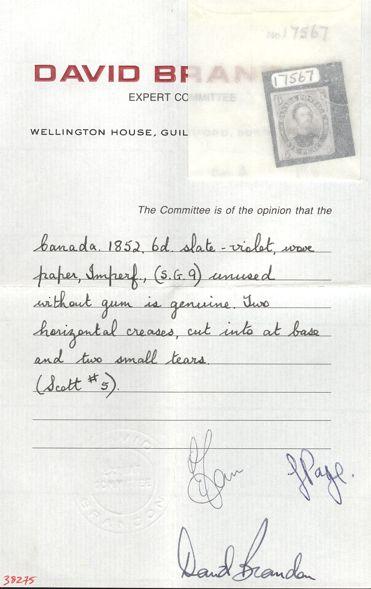 No 17567
DAVID BRAN
17567
EXPERT COMMITTEE
WELLINGTON HOUSE, GUIL
The Committee is of the opinion that the
Canada 1852, 6d. slate-violet, wove
paper, Imperf., (S.G.9) unused
without gum is genuine. Two
horizontal creases, cut into at base
and two small tears.
(Scott #5).
J Page.
DAVID
BRANDON
David Brandon
38275